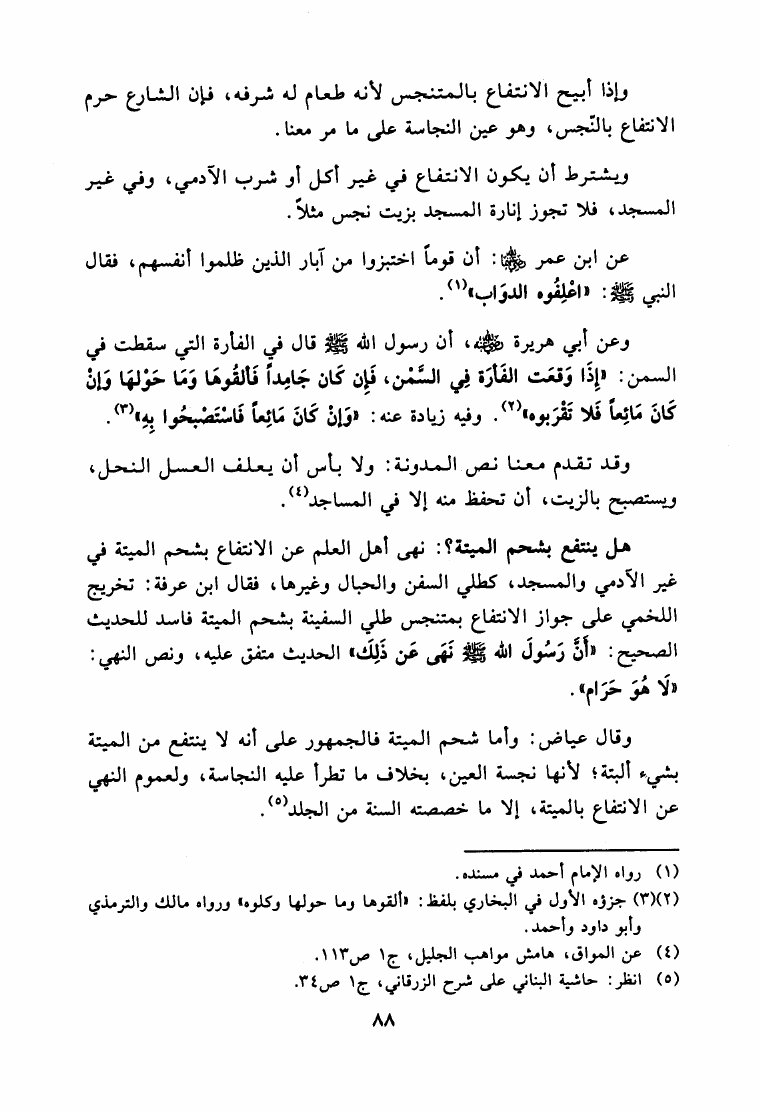 وإذا أبيح الانتفاع بالمتنجس لأنه طعام له شرفه، فإن الشارع حرم
الانتفاع بالنّجس، وهو عين النجاسة على ما مر معنا.
ويشترط أن يكون الانتفاع في غير أكل أو شرب الآدمي، وفي غير
المسجد، فلا تجوز إنارة المسجد بزيت نجس مثلاً.
عن ابن عمر رضي الله عنهما: أن قوماً اختبزوا من آبار الذين ظلموا أنفسهم، فقال
النبي ﷺ: «اعْلِفُوه الدوَاب»(١).
وعن أبي هريرة رضي الله عنه، أن رسول الله ﷺ قال في الفأرة التي سقطت في
السمن: «إِذَا وَقَعَت الفَأرَة فِي السَّمْن، فَإِن كَان جَامِداً فَألقُوهَا وَمَا حَوْلهَا وَإِنْ
كَانَ مَائِعاً فَلا تَقْرَبوه»(٢). وفيه زيادة عنه: «وَإِنْ كَانَ مَائِعاً فَاسْتَصْبِحُوا بِهِ»(٣).
وقد تقدم معنا نص المدونة: ولا بأس أن يعلف العسل النحل،
ويستصبح بالزيت، أن تحفظ منه إلا في المساجد(٤).
هل ينتفع بشحم الميتة؟: نهى أهل العلم عن الانتفاع بشحم الميتة في
غير الآدمي والمسجد، كطلي السفن والحبال وغيرها، فقال ابن عرفة: تخريج
اللخمي على جواز الانتفاع بمتنجس طلي السفينة بشحم الميتة فاسد للحديث
الصحيح: «أَنَّ رَسُولَ الله ﷺ نَهَى عَن ذَلِكَ» الحديث متفق عليه، ونص النهي:
«لَا هُوَ حَرَام».
وقال عياض: وأما شحم الميتة فالجمهور على أنه لا ينتفع من الميتة
بشيء ألبتة؛ لأنها نجسة العين، بخلاف ما تطرأ عليه النجاسة، ولعموم النهي
عن الانتفاع بالميتة، إلا ما خصصته السنة من الجلد(٥).
(١) رواه الإمام أحمد في مسنده.
(٢)(٣) جزؤه الأول في البخاري بلفظ: «ألقوها وما حولها وكلوه» ورواه مالك والترمذي
وأبو داود وأحمد.
(٤) عن المواق، هامش مواهب الجليل، ج١ ص١١٣.
(٥) انظر: حاشية البناني على شرح الزرقاني، ج١ ص٣٤.
٨٨